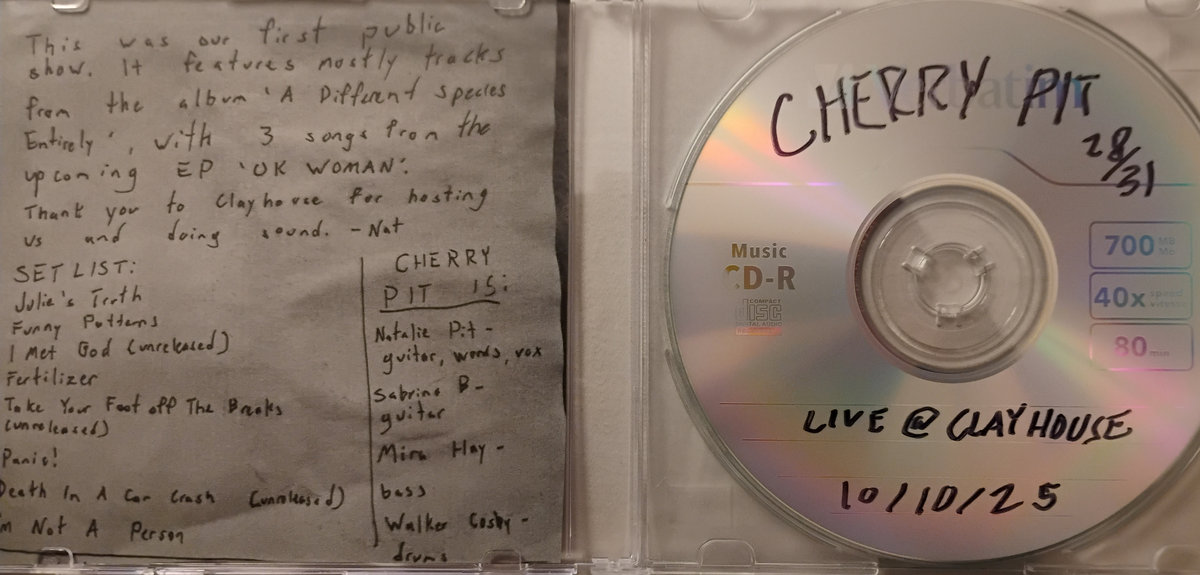 This was our first public
show. It features mostly tracks
from the album 'A Different Species
Entirely', with 3 songs from the
upcoming EP 'OK WOMAN'.
Thank you to Clayhouse for hosting
us and doing sound. - Nat
SET LIST:
Julie's Truth
Funny Patterns
I Met God (unreleased)
Fertilizer
Take Your Foot off The Breaks
(unreleased)
Panic!
Death In A Car Crash (unreleased)
I'm Not A Person
CHERRY
PIT IS:
Natalie Pit -
guitar, words, vox
Sabrina B -
guitar
Mira Hay -
bass
Walker Cosby -
drums
CHERRY PIT
28/31
Music
CD-R
COMPACT
disc
DIGITAL AUDIO
700 MB
Mo
40x speed
vitesse
80 min
LIVE @ CLAYHOUSE
10/10/25